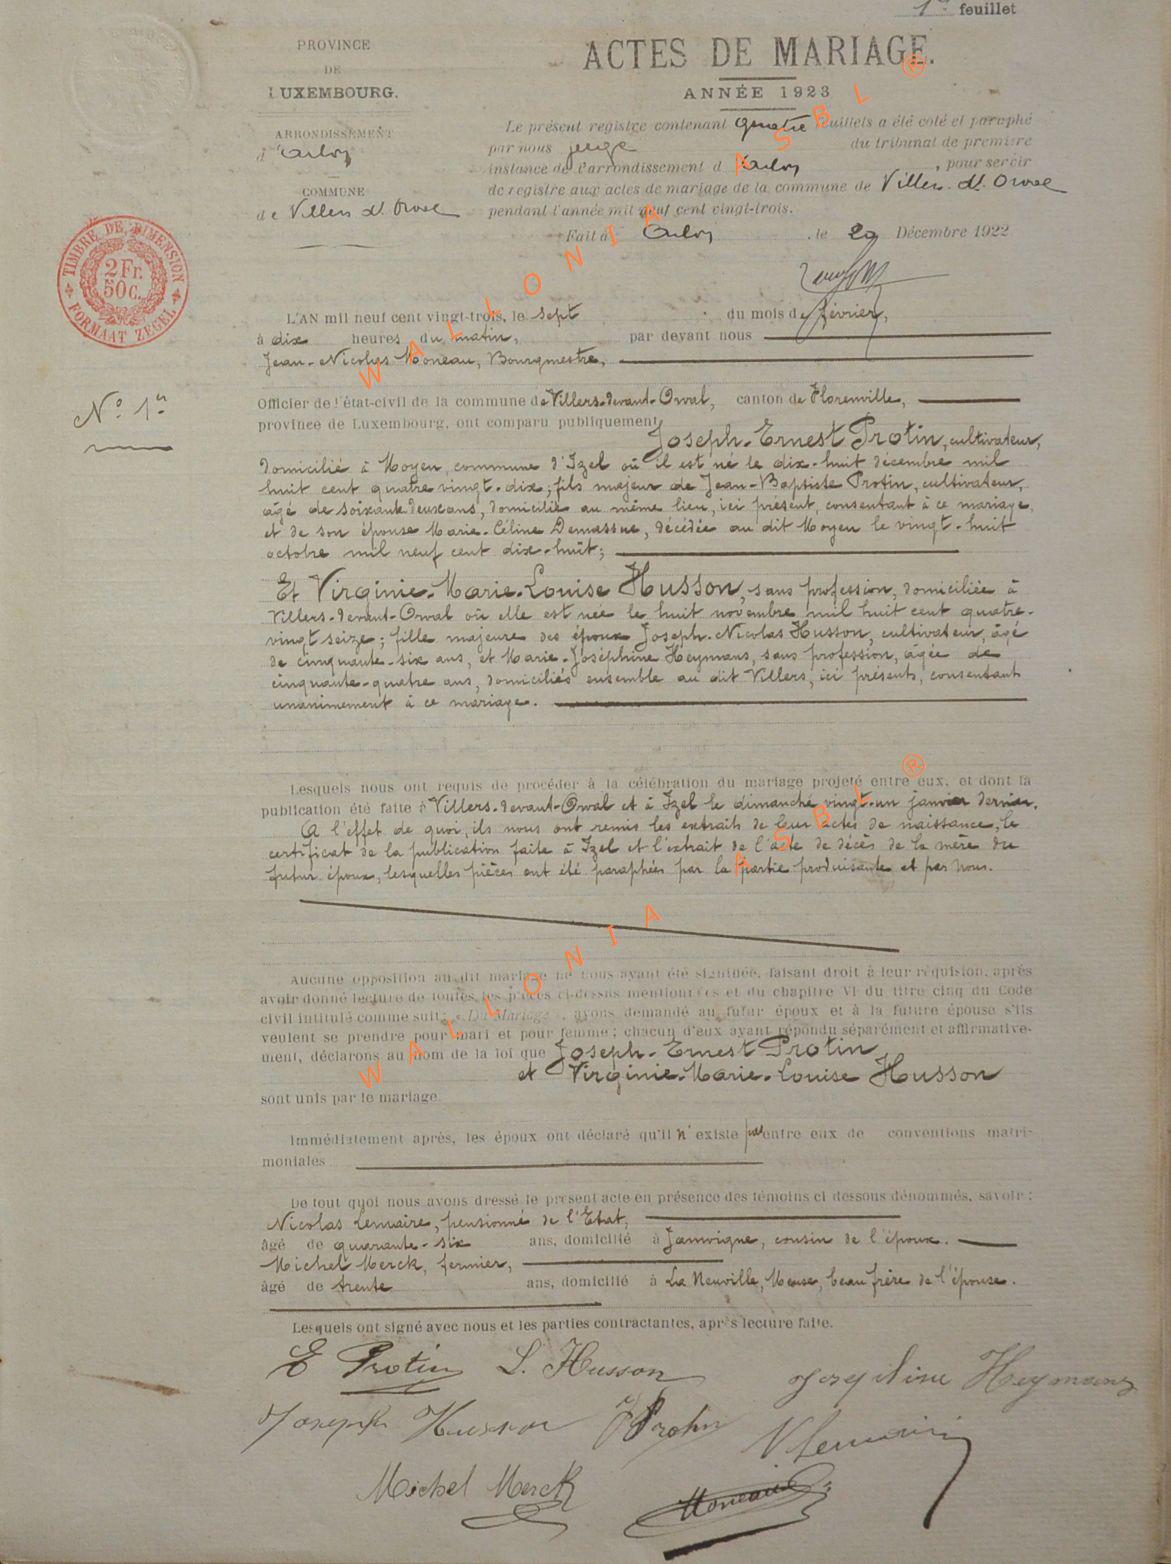 1er feuillet
PROVINCE
DE
LUXEMBOURG.
ARRONDISSEMENT
d'Arlon
COMMUNE
de Villers dt Orval
ACTES DE MARIAGE.
ANNÉE 1923
Le présent registre contenant quatre feuillets a été coté et paraphé
par nous juge du tribunal de première
instance de l'arrondissement d'Arlon, pour servir
de registre aux actes de mariage de la commune de Villers dt Orval
pendant l'année mil neuf cent vingt-trois.
Fait à Arlon, le 29 Décembre 1922
TIMBRE DE DIMENSION
2 Fr.
50 C.
FORMAAT ZEGEL
No 1er
L'AN mil neuf cent vingt-trois, le sept du mois de février,
à dix heures du matin, par devant nous
Jean-Nicolas Moneau, Bourgmestre,
Officier de l'état-civil de la commune de Villers-devant-Orval, canton de Florenville,
province de Luxembourg, ont comparu publiquement Joseph-Ernest Protin, cultivateur,
domicilié à Moyen, commune d'Izel où il est né le dix-huit décembre mil
huit cent quatre vingt-dix; fils majeur de Jean-Baptiste Protin, cultivateur,
âgé de soixante deux ans, domicilié au même lieu, ici présent, consentant à ce mariage,
et de son épouse Marie-Céline Demasse, décédée au dit Moyen le vingt-huit
octobre mil neuf cent dix-huit;
Et Virginie-Marie-Louise Husson, sans profession, domiciliée à
Villers-devant-Orval où elle est née le huit novembre mil huit cent quatre-
vingt seize; fille majeure des époux Joseph-Nicolas Husson, cultivateur, âgé
de cinquante-six ans, et Marie-Joséphine Heymans, sans profession, âgée de
cinquante-quatre ans, domiciliés ensemble au dit Villers, ici présents, consentant
unanimement à ce mariage.
Lesquels nous ont requis de procéder à la célébration du mariage projeté entre eux, et dont la
publication été faite à Villers-devant-Orval et à Izel le dimanche vingt-un janvier dernier.
A l'effet de quoi, ils nous ont remis les extraits de leur actes de naissance, le
certificat de la publication faite à Izel et l'extrait de l'acte de décès de la mère du
futur époux, lesquelles pièces ont été paraphées par la partie produisante et par nous.
Aucune opposition au dit mariage ne nous ayant été signifiée, faisant droit à leur réquision, après
avoir donné lecture de toutes les pièces ci-dessus mentionnées et du chapitre VI du titre cinq du Code
civil intitulé comme suit: « Du Mariage », avons demandé au futur époux et à la future épouse s'ils
veulent se prendre pour mari et pour femme; chacun d'eux ayant répondu séparément et affirmative-
ment, déclarons au nom de la loi que Joseph-Ernest Protin
et Virginie-Marie-Louise Husson
sont unis par le mariage
Immédiatement après, les époux ont déclaré qu'il n'existe pas entre eux de conventions matri-
moniales
De tout quoi nous avons dressé le présent acte en présence des témoins ci dessous dénommés, savoir:
Nicolas Lemaire, pensionné de l'Etat,
âgé de quarante-six ans, domicilié à Jamoigne, cousin de l'époux.
Michel Merck, fermier,
âgé de trente ans, domicilié à La Neuville, Meuse, beau frère de l'épouse.
Lesquels ont signé avec nous et les parties contractantes, après lecture faite.
E Protin L. Husson Josephine Heymans
Joseph Husson JB Protin N Lemaire
Michel Merck Moneau
WALLONIA ASBL ®
WALLONIA ASBL ®